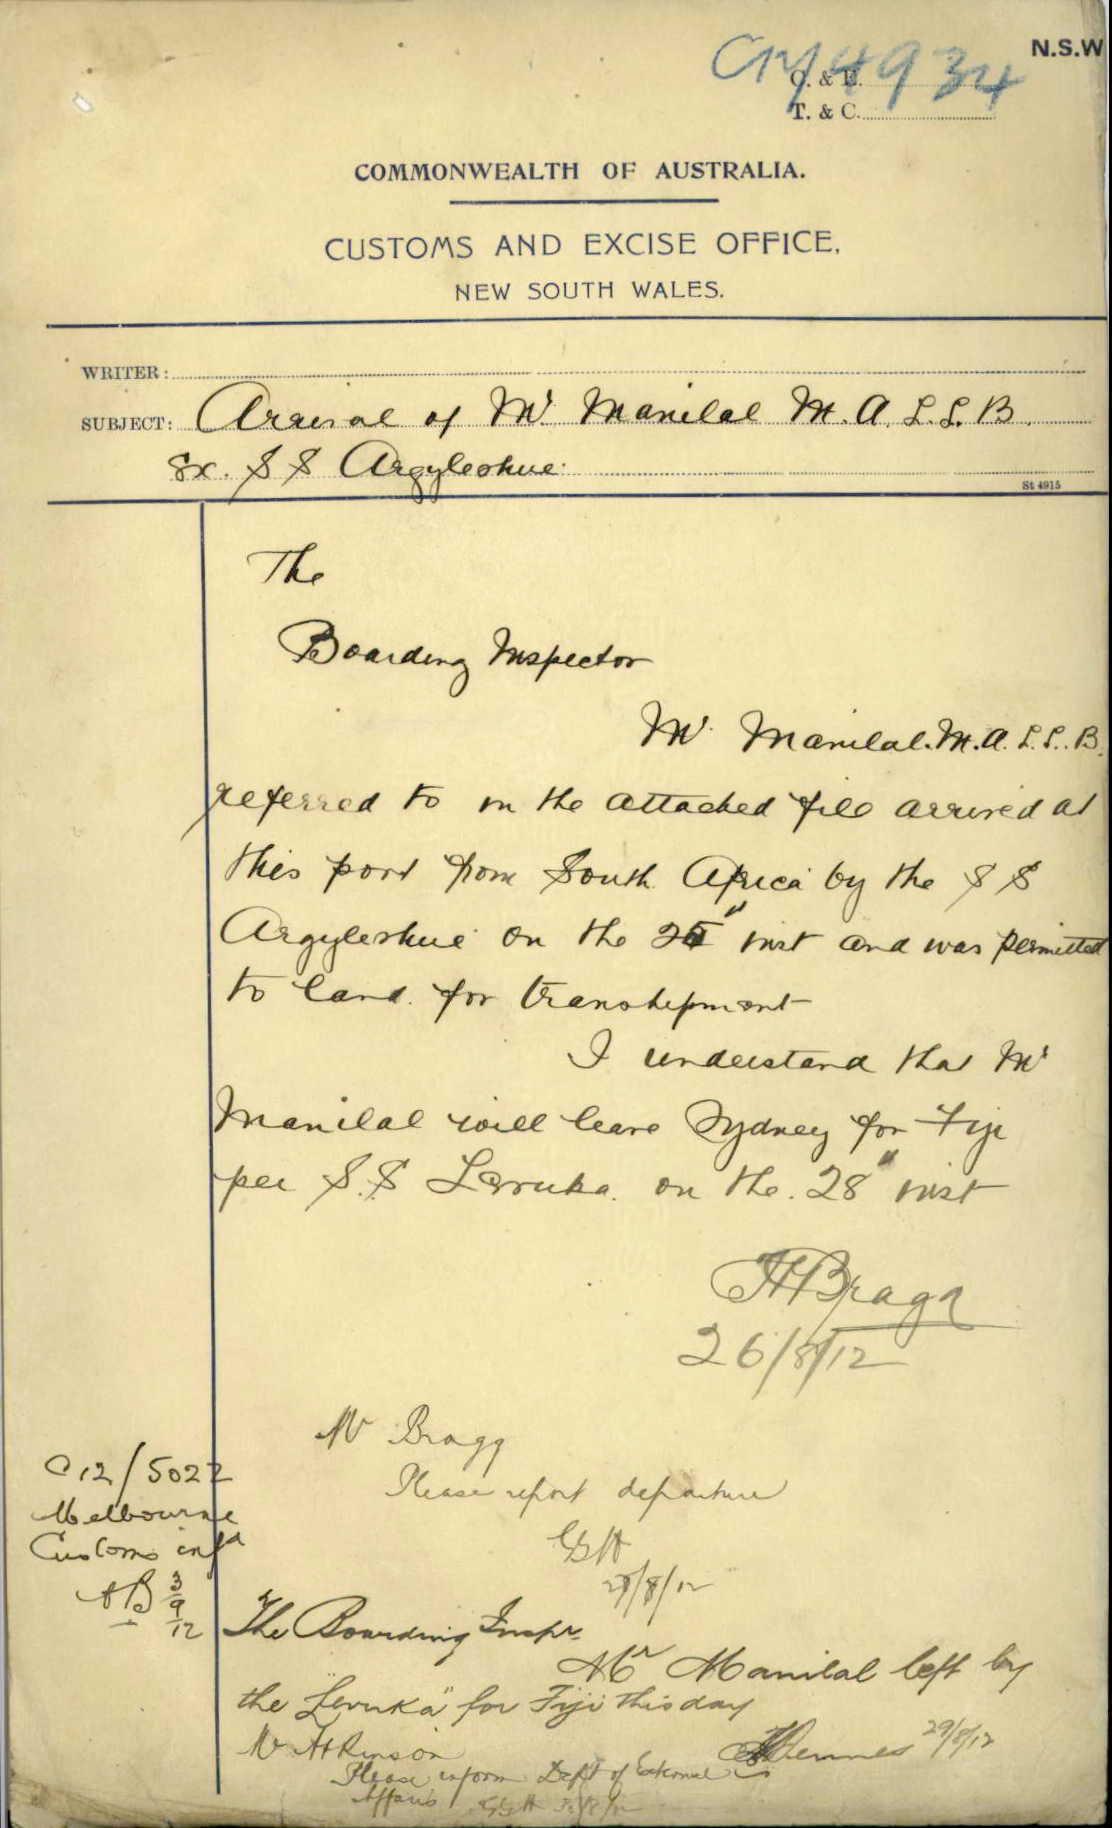 N.S.W
C12/4934
C. & E.
T. & C.
COMMONWEALTH OF AUSTRALIA.
CUSTOMS AND EXCISE OFFICE,
NEW SOUTH WALES.
WRITER:
SUBJECT: Arrival of Mr Manilal M.A. L.L.B.
ex. S S Argyleshire
St 4915
The
Boarding Inspector
Mr Manilal. M.A. L.L.B.
referred to in the attached file arrived at
this port from South Africa by the S S
Argyleshire on the inst and was permitted
to land for transhipment
I understand that Mr
Manilal will leave Sydney for Fiji
per S.S Levuka on the 28" inst
Bragg
26/8/12
Mr Bragg
Please report departure
GSH
/8/12
C12/5022
Melbourne
Customs infd
AB 3/9/12
The Boarding Inspr.
Mr Manilal left by
the "Levuka" for Fiji this day
29/8/12
Mr Atkinson
Please inform Dept of External
Affairs